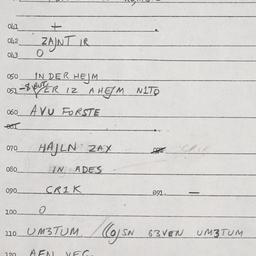 041 +
042 ZAJNT IR
043 O
050 IN DER HEJM
051 ER IZ AHEJM NITO
060 AVU FORSTE
061
070 HAJLN ZAX
080 IN ADES
090 CRIK 091. —
100 O
110 UMZTUM / (O)JSN GZVEN UMZTUM
120 AFN VEG.